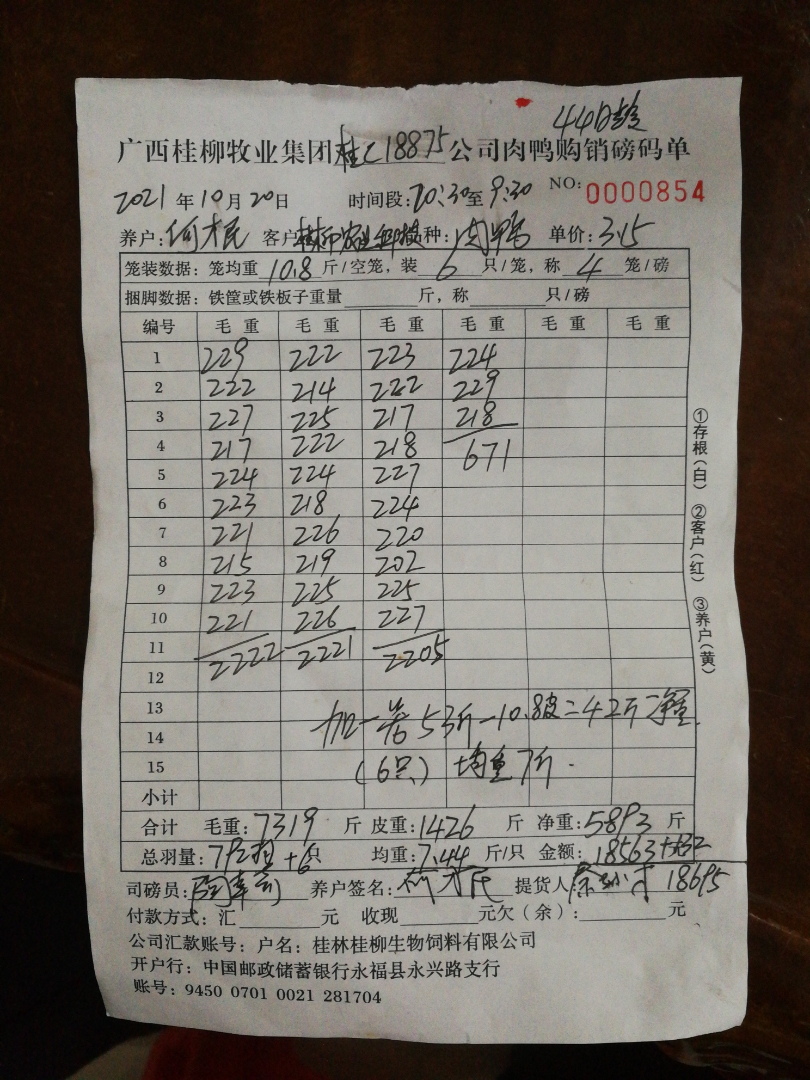 44日龄
广西桂柳牧业集团桂C18875公司肉鸭购销磅码单
2021年10月20日 时间段:20:30至9:30 NO:0000854
养户:何木民 客户 种:肉鸭 单价:3.15
笼装数据:笼均重10.8斤/空笼,装6只/笼,称4笼/磅
捆脚数据:铁筐或铁板子重量 斤,称 只/磅
编号 毛重 毛重 毛重 毛重 毛重 毛重
1 229 222 223 224
2 222 214 222 229
3 227 225 217 218
4 217 222 218 671
5 224 224 227
6 223 218 224
7 221 226 220
8 215 219 202
9 223 225 225
10 221 226 227
11 2222 2221 2205
12
13 加一卷53斤-10.8皮=42斤净重
14
15 (6只)均重7斤.
小计
合计 毛重:7319斤 皮重:1426斤 净重:5893斤
总羽量:792 +6只 均重:7.44斤/只 金额:18563+132
司磅员: 养户签名:何木民 提货人: 18695
付款方式:汇 元 收现 元欠(余): 元
公司汇款账号:户名:桂林桂柳生物饲料有限公司
开户行:中国邮政储蓄银行永福县永兴路支行
账号:9450 0701 0021 281704
①存根(白) ②客户(红) ③养户(黄)